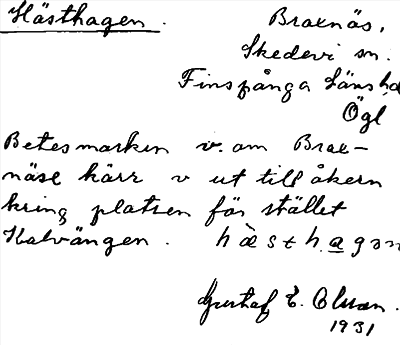 Hästhagen.
Braenäs,
Skedevi sn.
Finspånga Länshd
Ögl
Betesmarken v. om Brae-
näse kärr v ut till åkern
kring platsen för stället
Kalvängen. hàsthagan
Gustaf E. Olsson.
1931